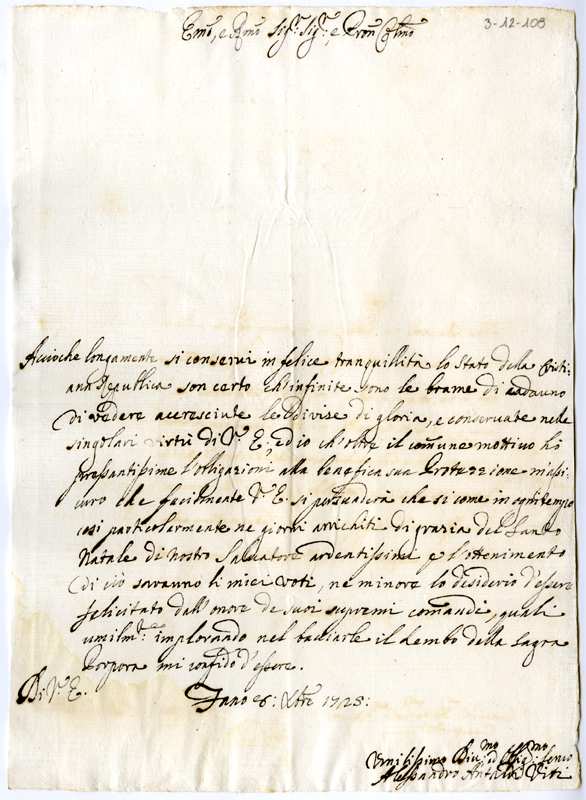 3-12-108
Emo, e Rmo Sigr: Sigr:, e Pron Colmo
Acciòche longamente si conservi in felice tranquillità lo stato della Cristi:
ana Republica son certo ch'infinite sono le brame di cadauno
di vedere accresciute le divise di gloria, e conservate nelle
singolari virtù di V. E., ed io ch'oltre il comune mottivo hò
pressantissime l'obligazioni alla benefica sua Protezzione m'assi:
curo che facilmente V. E. si persuaderà che si come in ogni tempo
così particolarmente ne giorni arrichiti di grazia del Santo
Natale di Nostro Salvatore ardentissimi p l'ottenimento
di ciò saranno li miei voti, ne minore lo desiderio d'essere
felicitato dall'onore de suoi supremi comandi, quali
umilmte: implorando nel bacciarle il lembo della Sagra
Porpora mi confido d'essere.
Di V. E.
Fano 6: Xbre 1728:
Umilissimo Divmo ed Obligmo Servo
Alessandro Antaldi Viti